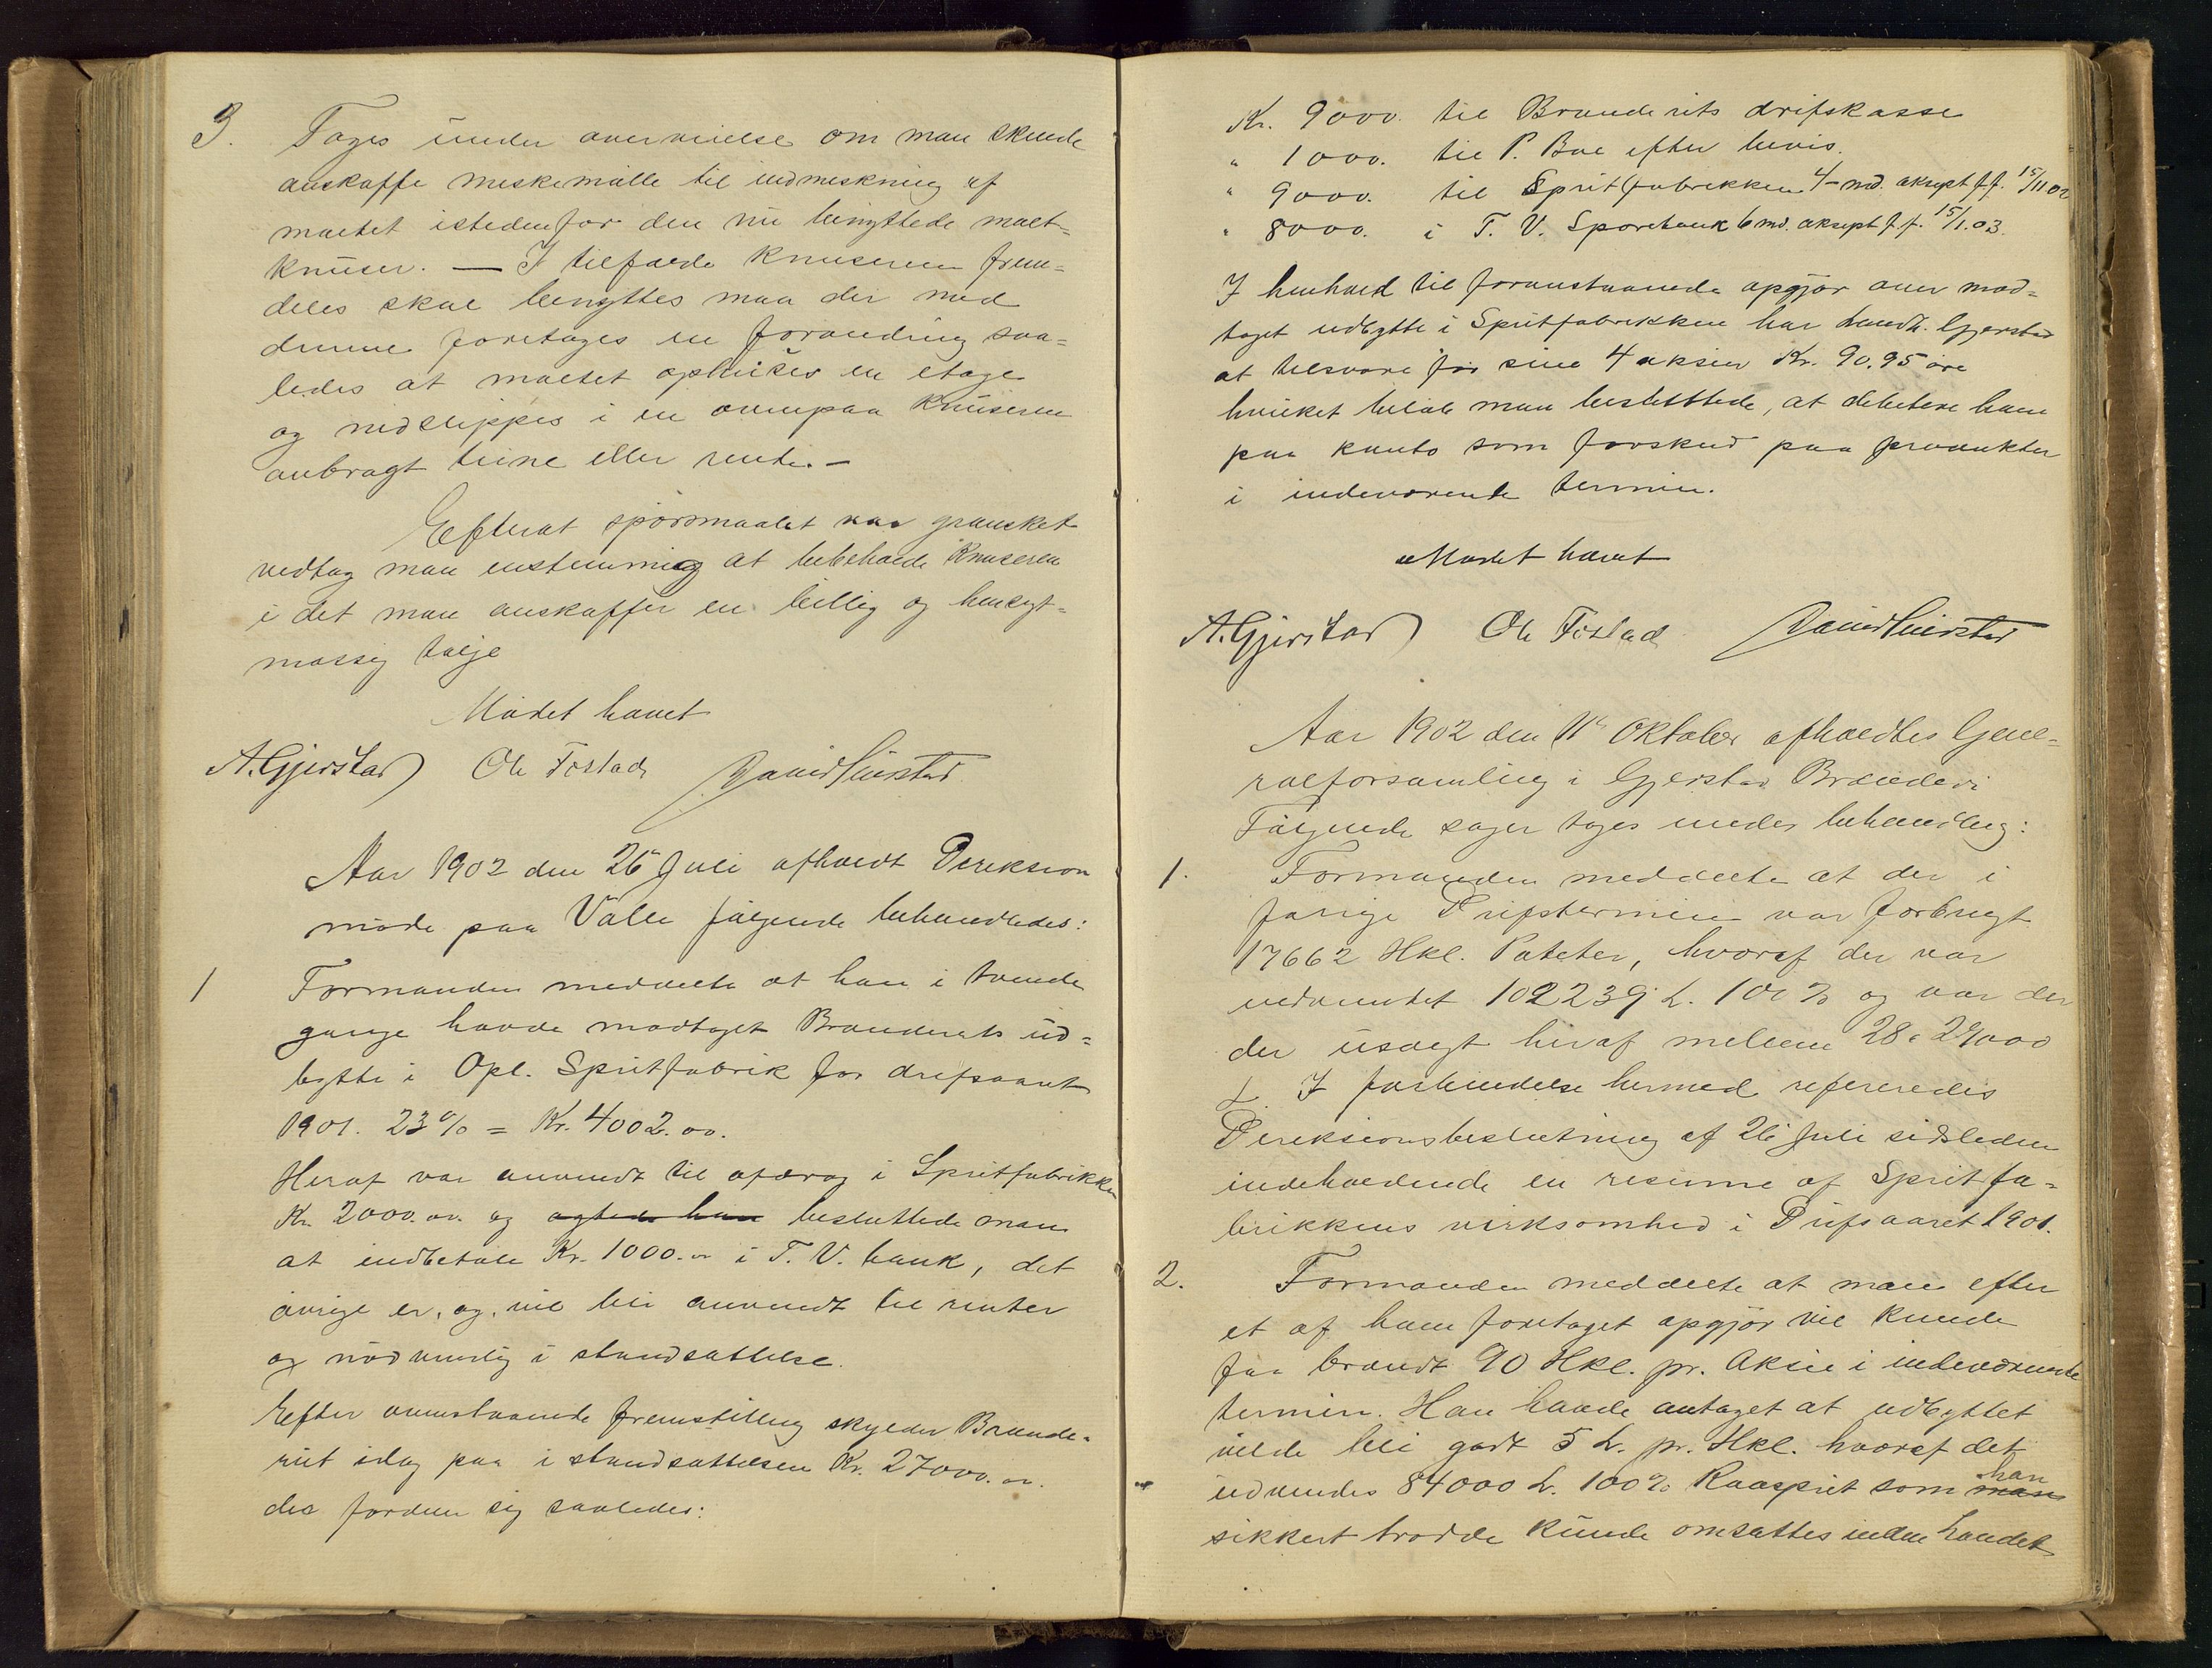 3. Toges under overveielse om man skulde
anskaffe meskemølle til indmeskning af
maltet istedenfor den nu benyttede malt=
knuser. — I tilfælde knuseren frem=
deles skal benyttes maa der med
denne foretages en forandring saa=
ledes at maltet opheises en etage
og nedslippes i en ovenpaa knuseren
anbragt beine eller rende. —
Efterat spørsmaalet var gransket
vedtog man enstemmig at bibeholde knuseren
i det man anskaffer en billig og hensigt=
mæssig talje
Mødet hævet
A. Gjerstad Ole Fostad
Aar 1902 den 26 Juli afholdt Direksion
møde paa Valle følgende behandledes:
1 Formanden meddelte at han i tvende
gange havde modtaget Brænderiets ud=
bytte i Opl. Spritfabrik for driftsaaret
1901. 23% = Kr. 4002.00.
Heraf var anvendt til afdrag i Spritfabrikken
Kr. 2000.00. og agtede han besluttede man
at indbetale Kr. 1000.00 i T. V. bank, det
øvrige er, og, vil bli anvendt til renter
og nødvendig i standsættelse.
Efter ovenstaaende fremstilling skylder Brænde=
riet idag paa i standsættelsen Kr. 27000.00.
der fordeler sig saaledes:
Kr. 9000. til Brænderiets drifskasse
" 1000. til P. Boe efter bevis.
" 9000. til Spritfabrikken 4-md. aksept f.f. 15/11 02
" 8000. i T. V. Sparebank 6 md. aksept f.f. 15/1.03.
I henhold til foranstaaende opgjør over mod=
taget udbytte i Spritfabrikken har Landh. Gjerstad
at tilsvare for sine 4 aksier Kr. 90.95 øre
hvilket beløb man besluttede, at debitere ham
paa konto som forskud paa produkter
i indeværende termin.
Mødet hævet
A. Gjerstad Ole Fostad
Aar 1902 den 11te Oktober afholdtes Gene=
ralforsamling i Gjerstad Brænderi
Følgende sager toges under behandling:
1. Formanden meddelte at der i
forige Drifstermin var forbrugt
17662 Hkl. Poteter, hvoraf der var
udvundet 102239 L. 100% og var der
der usolgt heraf mellem 28 a 29000
L. I forbindelse hermed refereredes
Direksionsbeslutning af 26 Juli sidstleden
indeholdende en resume af Spritfa=
brikkens virksomhed i Drifsaaret 1901.
2. Formanden meddelte at man efter
et af ham foretaget opgjør vil kunde
faa brændt 90 Hkl. pr. Aksie i indeværende
termin. Han havde antaget at udbyttet
vilde bli godt 5 L. pr. Hkl. hvoraf det
udvindes 84000 L. 100% Raasprit som man han
sikkert trodde kunde omsættes inden Landet